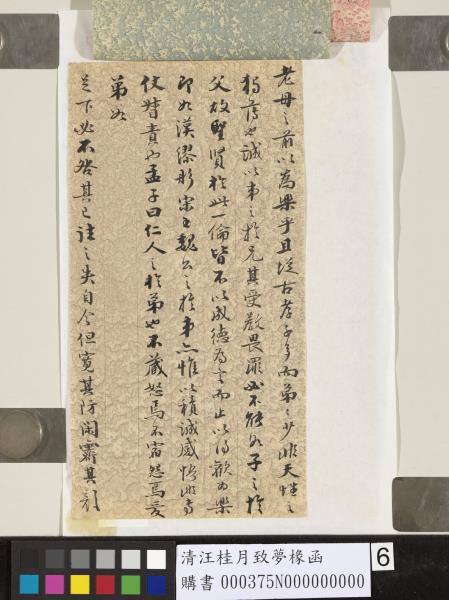 老母之前以為樂乎且從古孝子多而弟弟少非天性之
獨薄也誠以弟之於兄其受教畏罪必不能如子之於
父故聖賢於此一倫皆不以成德為言而止以得歡為樂
即如漢繆彤宋王魏公之於弟亦惟以積誠感悟非專
仗督責也孟子曰仁人之於弟也不藏怒焉不宿怨焉爰
弟如
足下必不咎其已往之失自今但寬其防閑霽其顏
清汪桂月致夢椽函
購書 000375N000000000
6